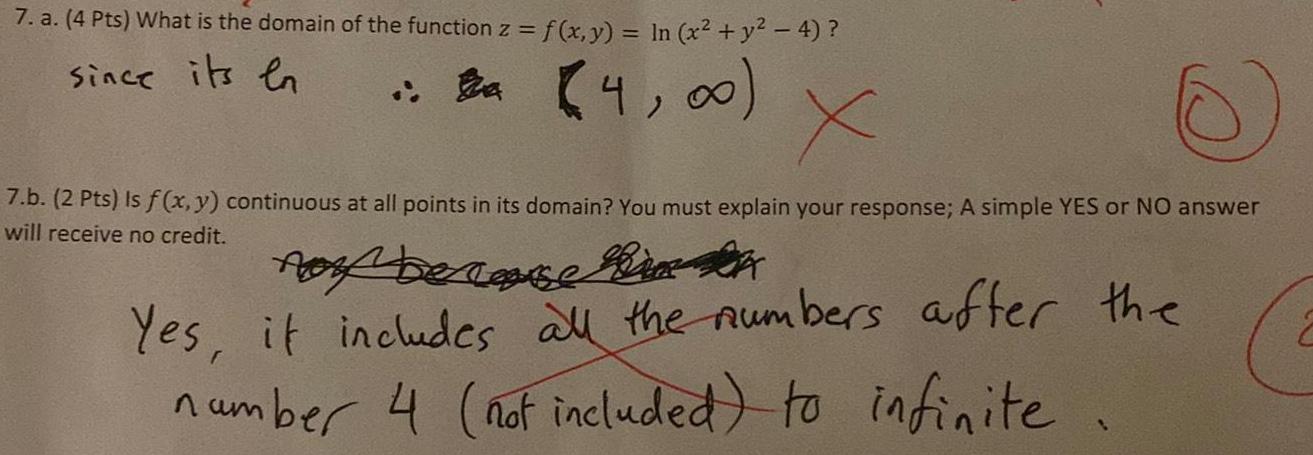 7. a. (4 Pts) What is the domain of the function z = f(x, y) = ln (x² + y² − 4) ?
since its ln ∴ (4, ∞)
0
7.b. (2 Pts) Is f(x, y) continuous at all points in its domain? You must explain your response; A simple YES or NO answer
will receive no credit.
Yes, it includes all the numbers after the
number 4 (not included) to infinite.